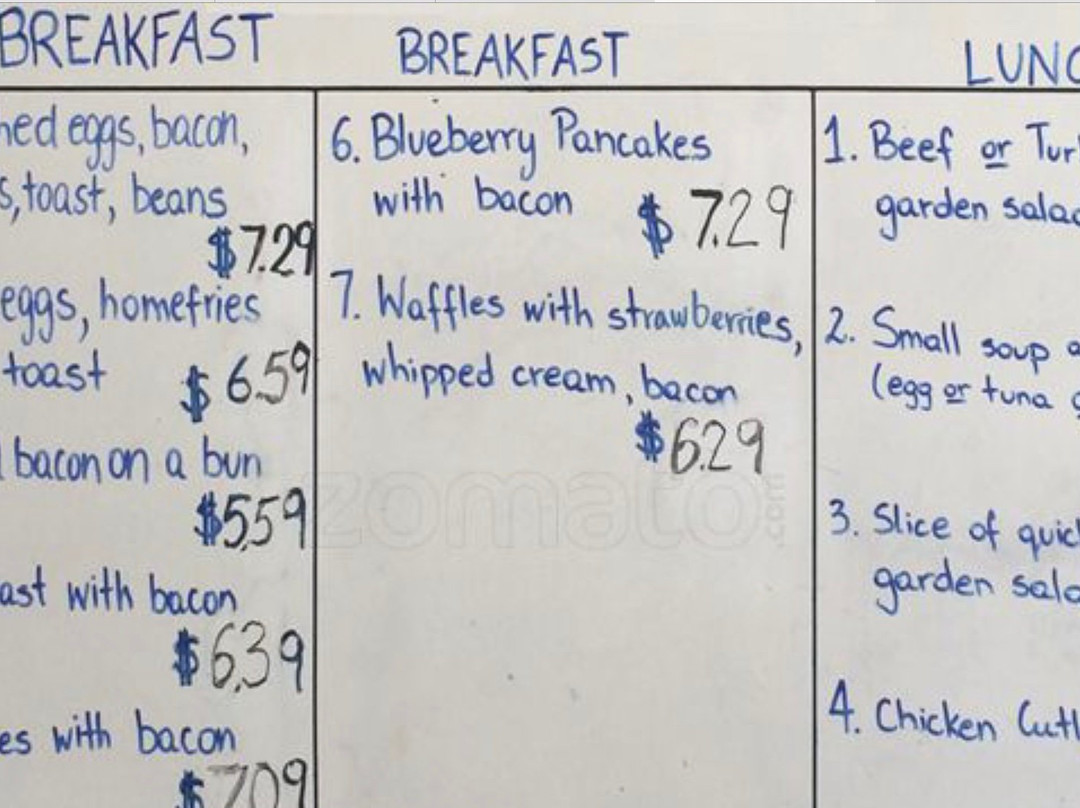 BREAKFAST
eggs, bacon,
toast, beans
$7.29
eggs, homefries
toast $6.59
bacon on a bun
$5.59
with bacon
$6.39
with bacon
$7.09
BREAKFAST
6. Blueberry Pancakes
with bacon $7.29
7. Waffles with strawberries,
whipped cream, bacon
$6.29
zomato.com
LUNC
1. Beef or Tur
garden salad
2. Small soup
(egg or tuna
3. Slice of quic
garden sala
4. Chicken Cutl